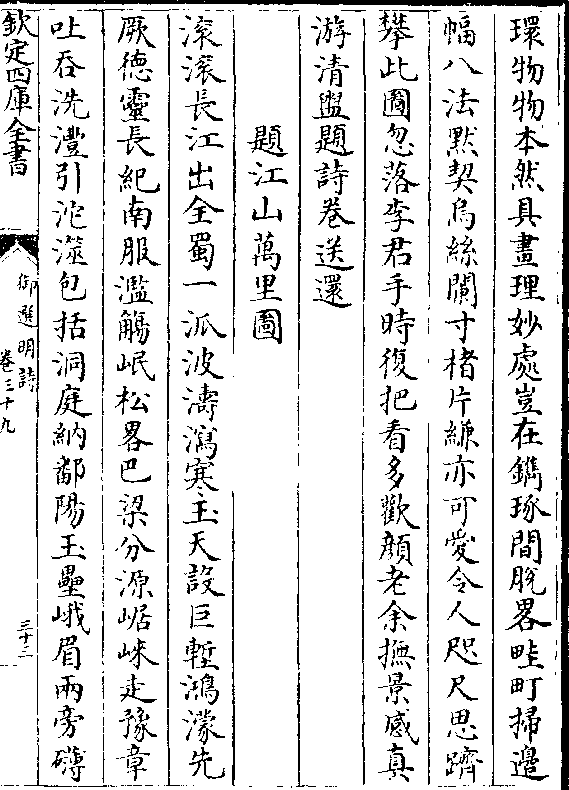 環物物本然具畫理妙處豈在鐫琢間脫畧畦町掃邊
幅八法默契烏絲闌寸楮片縑亦可愛令人咫尺思躋
攀此圖忽落李君手時復把看多歡顔老余撫景感真
游清盥題詩卷送還
題江山萬里圖
滚滚長江出全蜀一派波濤瀉寒玉天設巨塹鴻濛先
厥德靈長紀南服濫觴岷松畧巴梁分源崌崍走豫章
吐吞洗灃引沱澨包括洞庭納鄱陽玉壘峨眉兩旁礴
欽定四庫全書
御選明詩
卷三十九
三十二